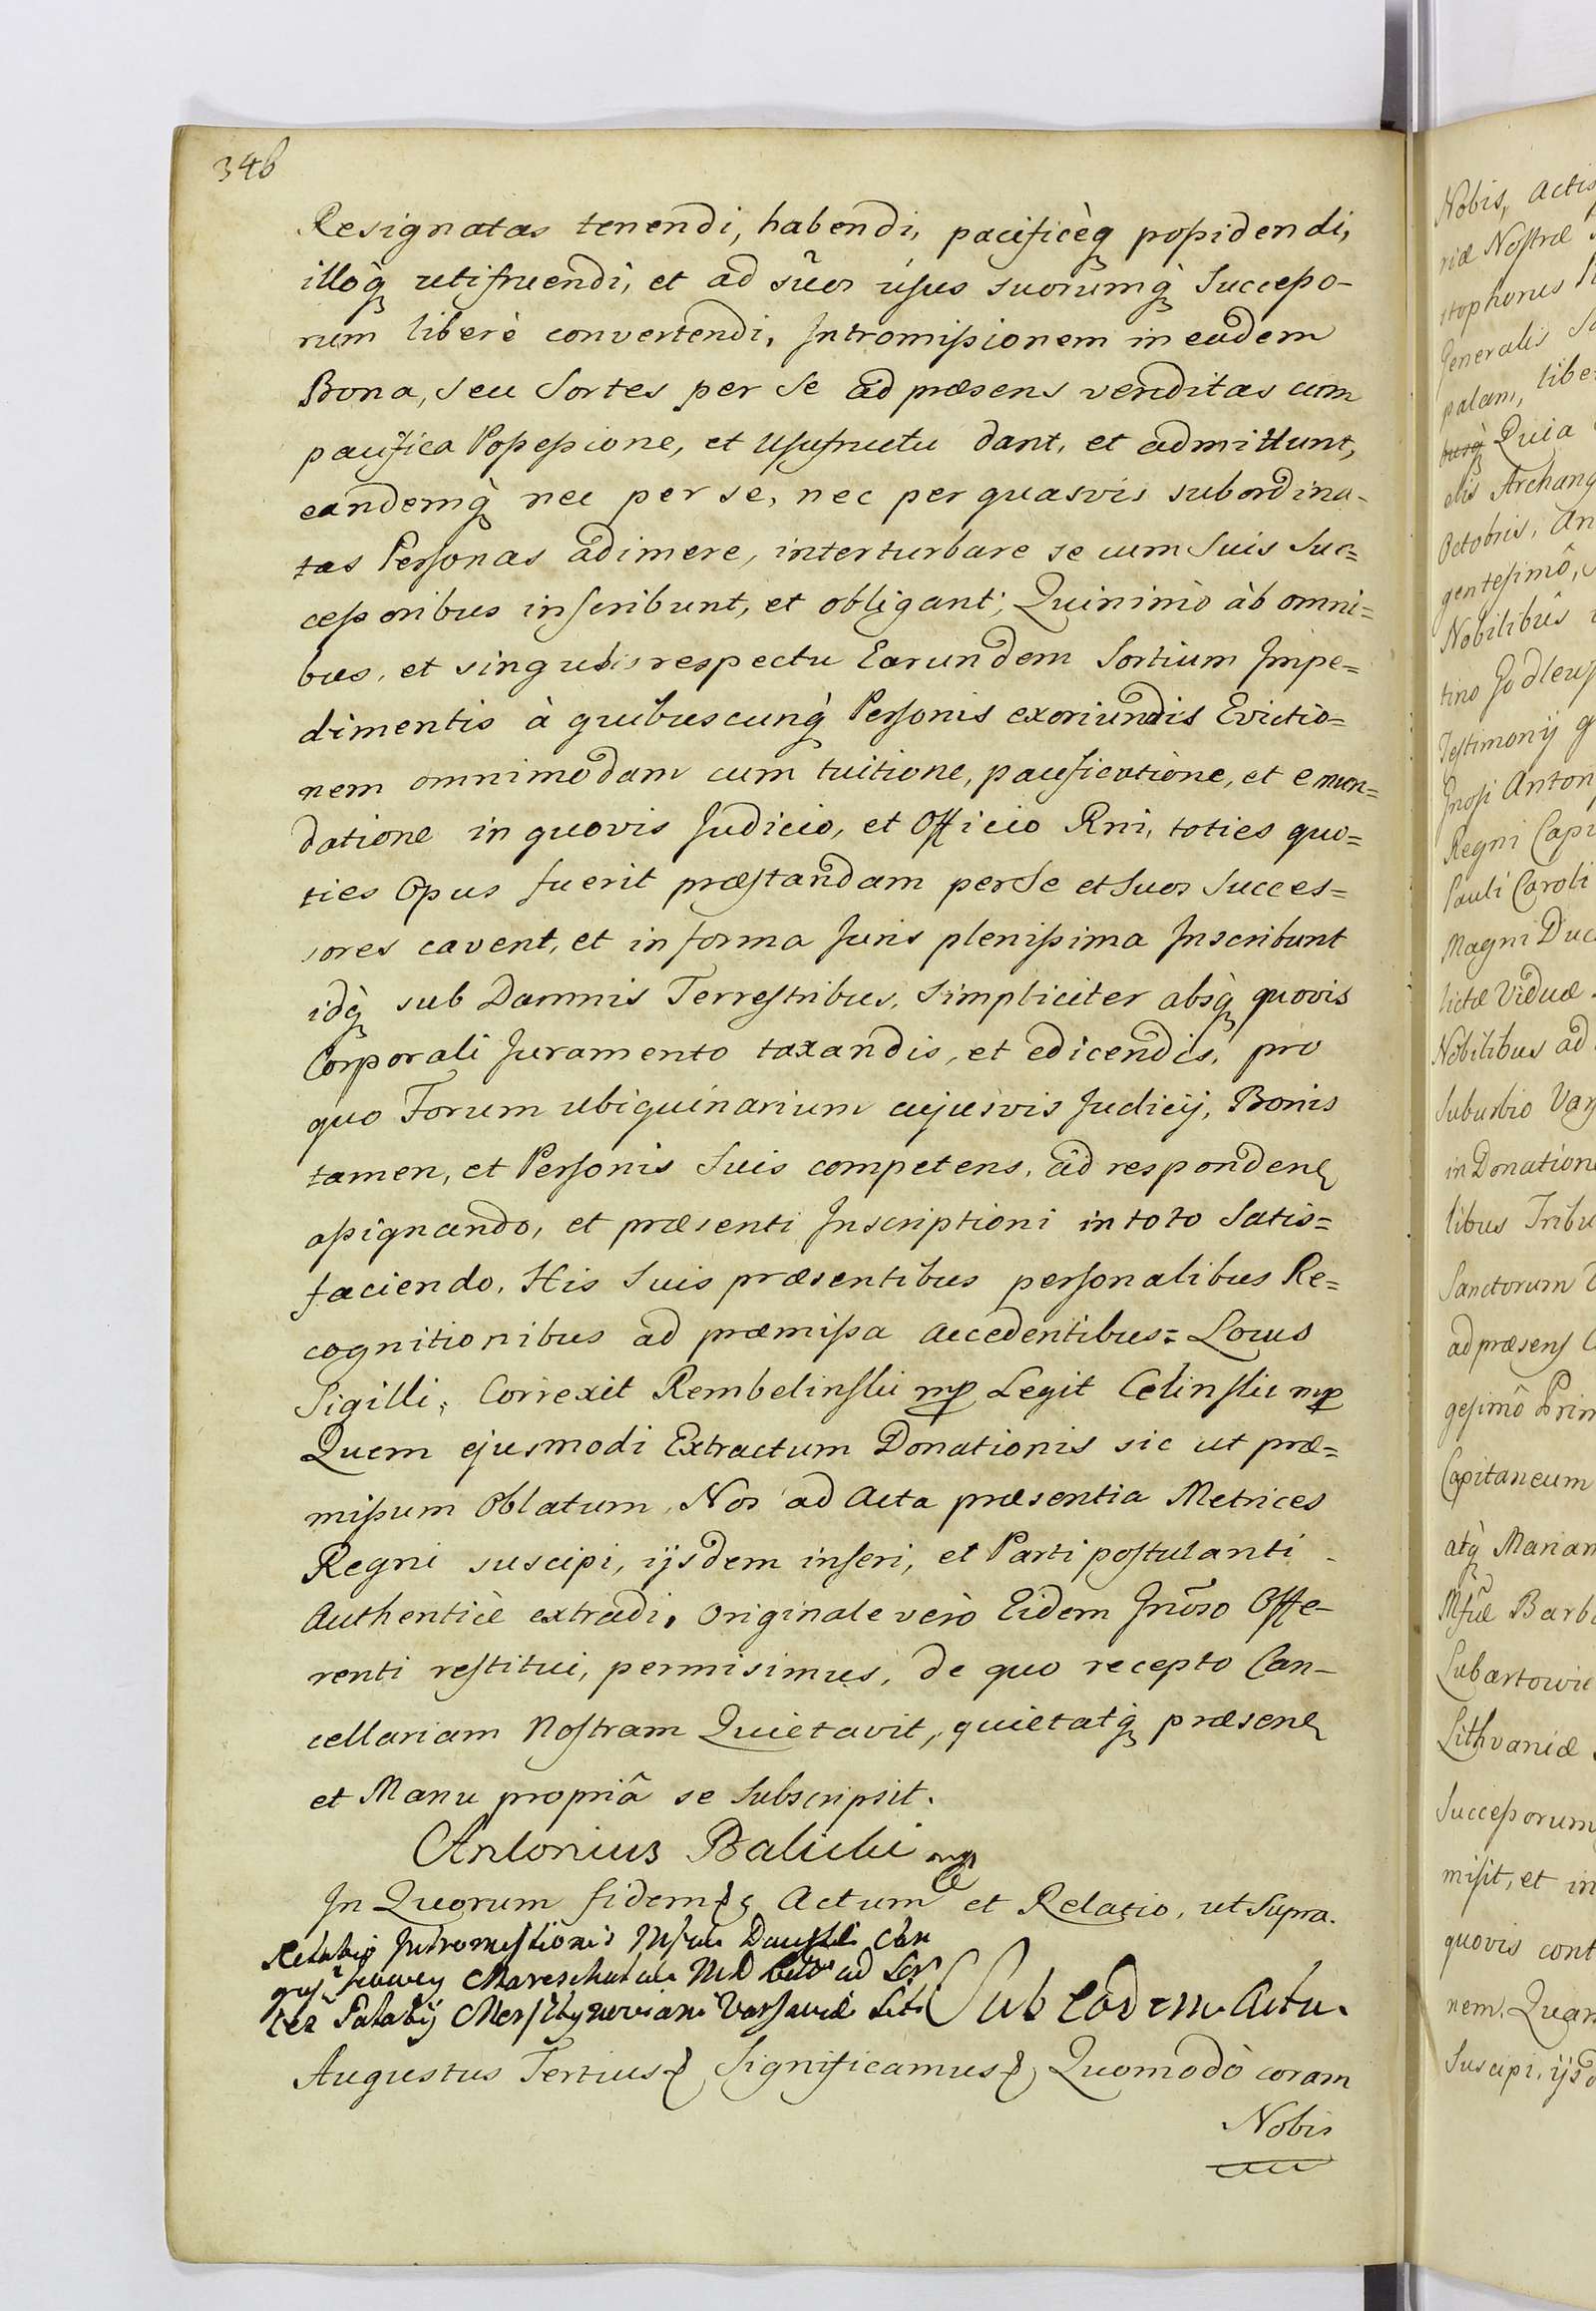 346
Resignatas tenendi, habendi, pacificèq́ꝫ poßidendi,
illoq́ꝫ utifruendi, et ad suos usus suorumq́ꝫ Succeßo-
rum liberè convertendi, Intromißionem in eadem
Bona, seu Sortes per Se ad præsens venditas cum
pacifica Poßeßione, et Usufructu dant, et admittunt,
eandemq́ꝫ nec per se, nec per quasvis subordina-
tas Personas adimere, interturbare se cum Suis Suc=
ceßoribus inscribunt, et obligant; Quinimò àb omni=
bus, et singulis respectu Earundem Sortium Impe=
dimentis à quibuscunq́ꝫ Personis exoriundis Evictio=
nem omnimodam cum tuitione, pacificatione, et emun=
datione in quovis Judicio, et Officio Rni, toties quo=
ties Opus fuerit præstandam per Se et Suos Succes=
sores cavent, et in forma Juris plenißima Inscribunt
idq́ꝫ sub Damnis Terrestribus, Simpliciter absq́ꝫ quovis
Corporali Juramento taxandis, et edicendis, pro
quo Forum ubiquinarium cujusvis Judicij, Bonis
tamen, et Personis Suis competens, ad responden
aßignando, et præsenti Inscriptioni in toto Satis=
faciendo. His Suis præsentibus personalibus Re=
cognitionibus ad præmißa accedentibus= Locus
Sigilli, Correxit Rembelinski mp Legit Celinski mp
Quem ejusmodi Extractum Donationis sic ut præ=
mißum Oblatum, Nos ad Acta præsentia Metrices
Regni suscipi, ijsdem inseri, et Parti postulanti
Authenticè extradi, Originale verò Eidem Gnõso Offe-
renti restitui, permisimus, de quo recepto Can-
cellariam Nostram Quietavit, quietatq́ꝫ præsen
et Manu propriâ se Subscripsit.
Antonius Balicki mp
In Quorum fidem Actum et Relatio, ut Supra.
Relatio Intromissionis
Mareschal ad
Palatij Varsaviæ Sub eodem Actu.
Augustus Tertius Significamus Quomodò coram
Nobis
Nobis, actis
riæ Nostræ
stophorus
Generalis
palam, libe
Quia
elis Archang
Octobris, An
gentesimô,
Nobilibus
tino Godlews
Testimonij
Gnosi Anton
Regni Capi
Pauli Caroli
Magni Duc
lictæ Viduæ
Nobilibus ad
Suburbio Var
in Donatione
libus Tribu
Sanctorum
ad præsens
gesimô Prim
Capitaneum
atq́ꝫ Marian
Barb
Lubartowie
Lithvaniæ
Succeßorum
misit, et in
quovis cont
nem. Quar
Suscipi, ijsd